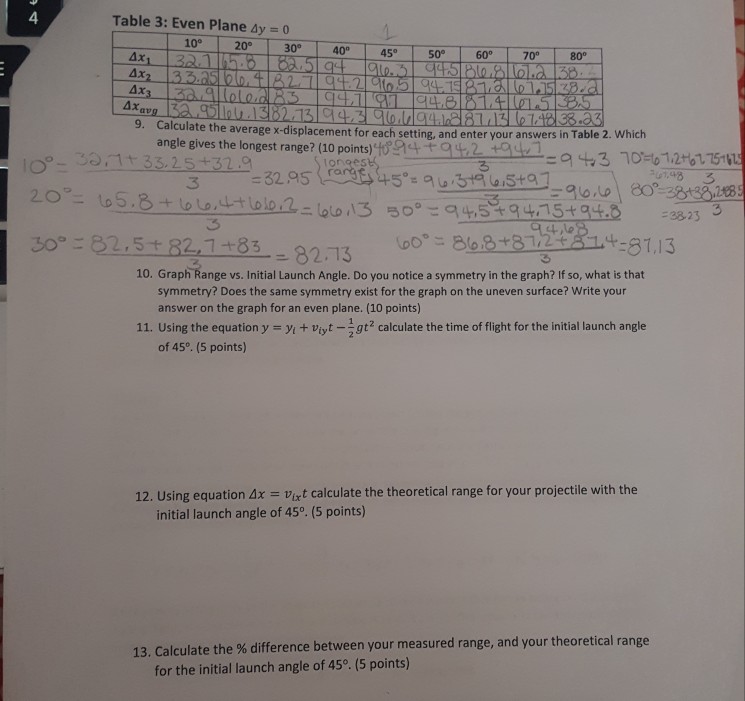 4
Table 3: Even Plane Δy = 0
1
10° 20° 30° 40° 45° 50° 60° 70° 80°
Δx₁ 32.7 65.8 82.5 94 96.3 94.5 86.8 67.2 38
Δx₂ 33.25 66.4 82.7 94.2 96.5 94.75 87.2 67.75 38.2
Δx₃ 32.9 66.2 83 94.7 97 94.8 87.4 67.5 38.5
Δxavg 32.95 66.13 82.73 94.3 96.6 94.68 87.13 67.48 38.23
9. Calculate the average x-displacement for each setting, and enter your answers in Table 2. Which
angle gives the longest range? (10 points) 40°= 94+94.2+94.7/3 = 94.3 70°=67.2+67.75+67.5/3
=67.48
10° = 32.7+33.25+32.9/3 = 32.95 {longest range} → 45° = 96.3+96.5+97/3 = 96.6 80°=38+38.2+38.5/3
=38.23
20° = 65.8+66.4+66.2/3 = 66.13 50° = 94.5+94.75+94.8/3
94.68
30° = 82.5+82.7+83/3 = 82.73 60° = 86.8+87.2+87.4/3 = 87.13
10. Graph Range vs. Initial Launch Angle. Do you notice a symmetry in the graph? If so, what is that
symmetry? Does the same symmetry exist for the graph on the uneven surface? Write your
answer on the graph for an even plane. (10 points)
11. Using the equation y = yᵢ + vᵢyt − ½gt² calculate the time of flight for the initial launch angle
of 45°. (5 points)
12. Using equation Δx = vᵢₓt calculate the theoretical range for your projectile with the
initial launch angle of 45°. (5 points)
13. Calculate the % difference between your measured range, and your theoretical range
for the initial launch angle of 45°. (5 points)